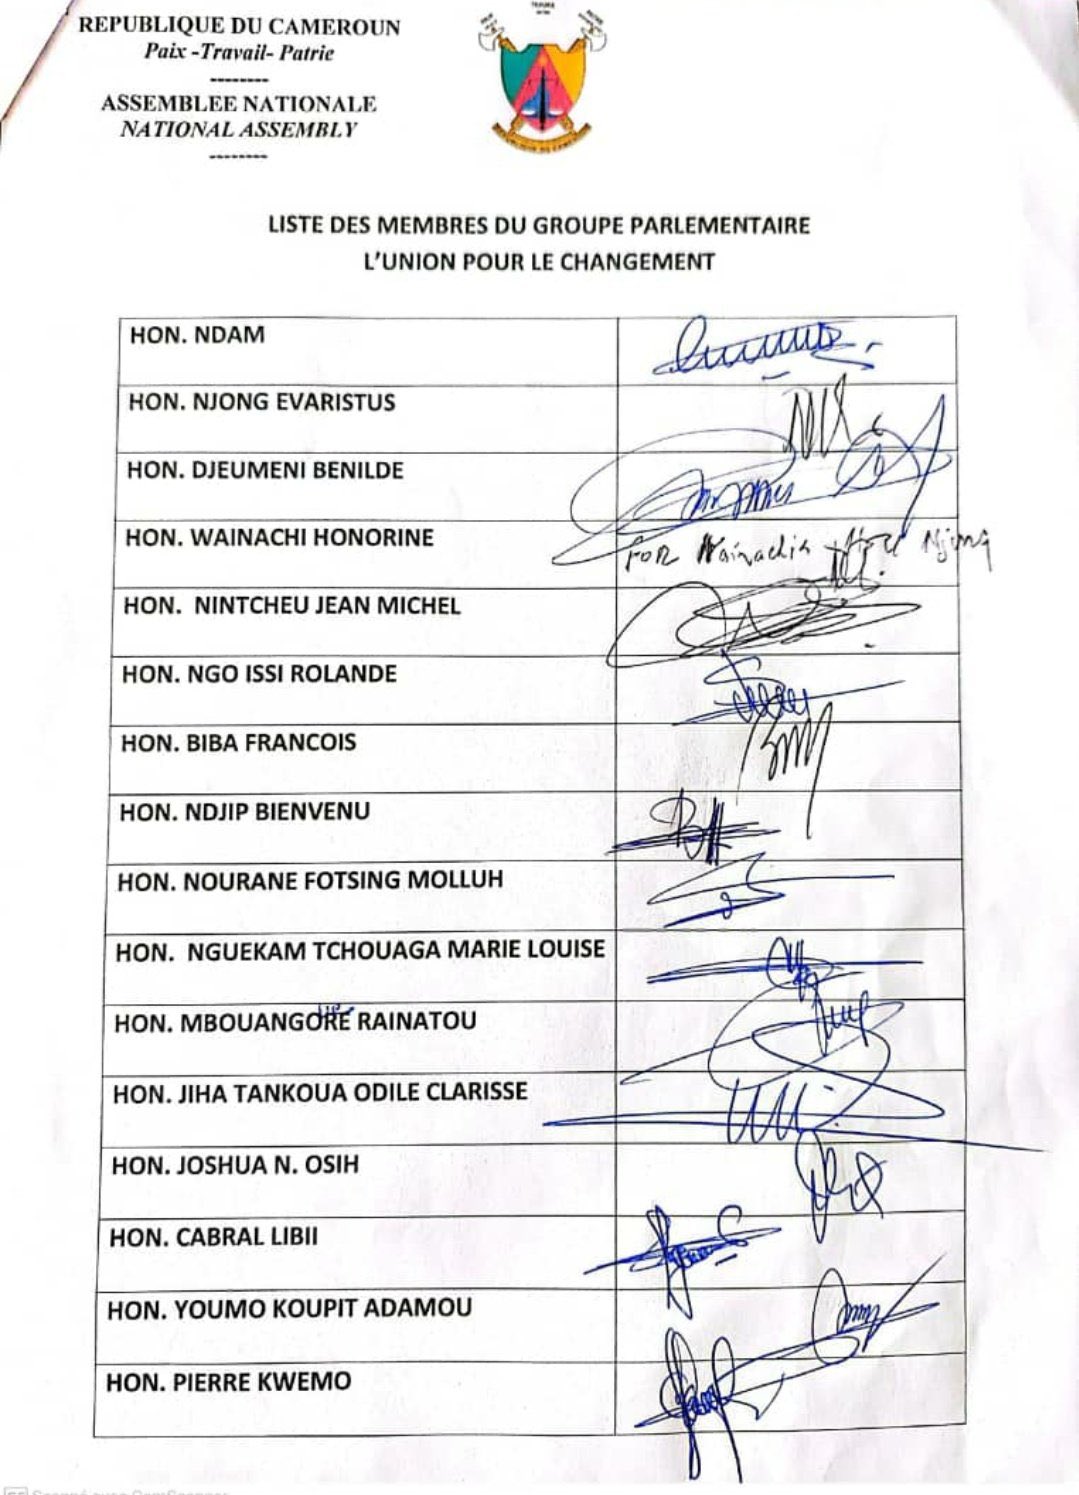 REPUBLIQUE DU CAMEROUN
Paix -Travail- Patrie
--------
ASSEMBLEE NATIONALE
NATIONAL ASSEMBLY
--------
REPUBLIQUE DU CAMEROUN
LISTE DES MEMBRES DU GROUPE PARLEMENTAIRE
L'UNION POUR LE CHANGEMENT
HON. NDAM
HON. NJONG EVARISTUS
HON. DJEUMENI BENILDE
HON. WAINACHI HONORINE
FOR Wainachi Njong
HON. NINTCHEU JEAN MICHEL
HON. NGO ISSI ROLANDE
HON. BIBA FRANCOIS
HON. NDJIP BIENVENU
HON. NOURANE FOTSING MOLLUH
HON. NGUEKAM TCHOUAGA MARIE LOUISE
HON. MBOUANGORE RAINATOU
HON. JIHA TANKOUA ODILE CLARISSE
HON. JOSHUA N. OSIH
HON. CABRAL LIBII
HON. YOUMO KOUPIT ADAMOU
HON. PIERRE KWEMO